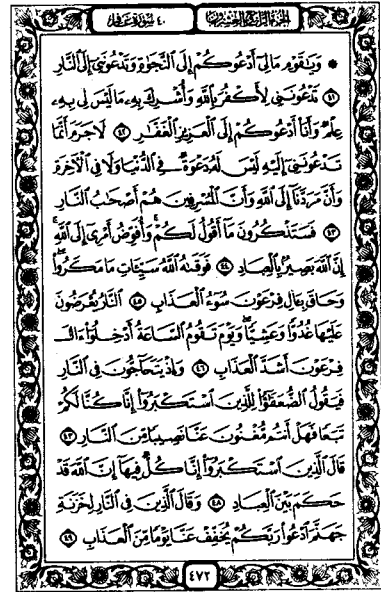 الجزء الرابع والعشرون ٤٠ سورة غافر
۞ وَيَٰقَوْمِ مَا لِىٓ أَدْعُوكُمْ إِلَى ٱلنَّجَوٰةِ وَتَدْعُونَنِىٓ إِلَى ٱلنَّارِ
٤١ تَدْعُونَنِى لِأَكْفُرَ بِٱللَّهِ وَأُشْرِكَ بِهِۦ مَا لَيْسَ لِى بِهِۦ
عِلْمٌ وَأَنَا۠ أَدْعُوكُمْ إِلَى ٱلْعَزِيزِ ٱلْغَفَّٰرِ ٤٢ لَا جَرَمَ أَنَّمَا
تَدْعُونَنِىٓ إِلَيْهِ لَيْسَ لَهُۥ دَعْوَةٌ فِى ٱلدُّنْيَا وَلَا فِى ٱلْءَاخِرَةِ
وَأَنَّ مَرَدَّنَآ إِلَى ٱللَّهِ وَأَنَّ ٱلْمُسْرِفِينَ هُمْ أَصْحَٰبُ ٱلنَّارِ
٤٣ فَسَتَذْكُرُونَ مَآ أَقُولُ لَكُمْ وَأُفَوِّضُ أَمْرِىٓ إِلَى ٱللَّهِ
إِنَّ ٱللَّهَ بَصِيرٌۢ بِٱلْعِبَادِ ٤٤ فَوَقَىٰهُ ٱللَّهُ سَيِّـَٔاتِ مَا مَكَرُوا۟
وَحَاقَ بِـَٔالِ فِرْعَوْنَ سُوٓءُ ٱلْعَذَابِ ٤٥ ٱلنَّارُ يُعْرَضُونَ
عَلَيْهَا غُدُوًّا وَعَشِيًّا وَيَوْمَ تَقُومُ ٱلسَّاعَةُ أَدْخِلُوٓا۟ ءَالَ
فِرْعَوْنَ أَشَدَّ ٱلْعَذَابِ ٤٦ وَإِذْ يَتَحَآجُّونَ فِى ٱلنَّارِ
فَيَقُولُ ٱلضُّعَفَٰٓؤُا۟ لِلَّذِينَ ٱسْتَكْبَرُوٓا۟ إِنَّا كُنَّا لَكُمْ
تَبَعًا فَهَلْ أَنتُم مُّغْنُونَ عَنَّا نَصِيبًا مِّنَ ٱلنَّارِ ٤٧
قَالَ ٱلَّذِينَ ٱسْتَكْبَرُوٓا۟ إِنَّا كُلٌّ فِيهَآ إِنَّ ٱللَّهَ قَدْ
حَكَمَ بَيْنَ ٱلْعِبَادِ ٤٨ وَقَالَ ٱلَّذِينَ فِى ٱلنَّارِ لِخَزَنَةِ
جَهَنَّمَ ٱدْعُوا۟ رَبَّكُمْ يُخَفِّفْ عَنَّا يَوْمًا مِّنَ ٱلْعَذَابِ ٤٩
٤٧٢